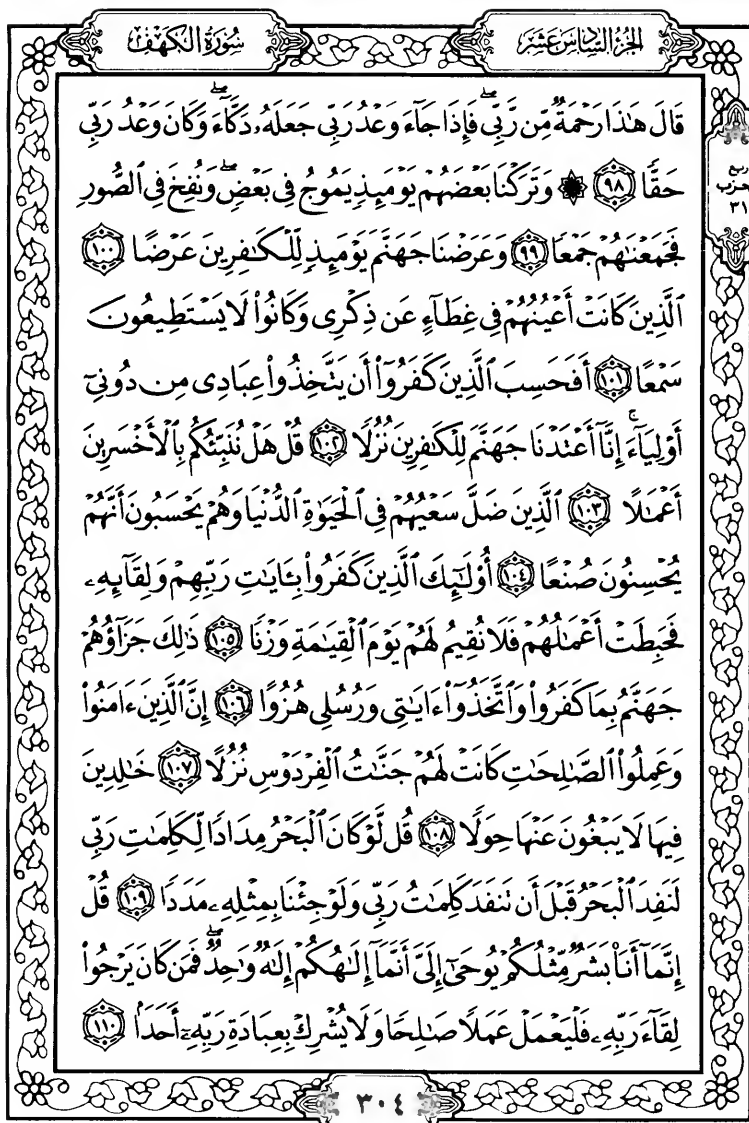 الجزء السادس عشر
سورة الكهف
قَالَ هَٰذَا رَحْمَةٌ مِّن رَّبِّي ۖ فَإِذَا جَآءَ وَعْدُ رَبِّي جَعَلَهُۥ دَكَّآءَ ۖ وَكَانَ وَعْدُ رَبِّي
حَقًّا ٩٨ ۞ وَتَرَكْنَا بَعْضَهُمْ يَوْمَئِذٍ يَمُوجُ فِي بَعْضٍ ۖ وَنُفِخَ فِي ٱلصُّورِ
فَجَمَعْنَٰهُمْ جَمْعًا ٩٩ وَعَرَضْنَا جَهَنَّمَ يَوْمَئِذٍ لِّلْكَٰفِرِينَ عَرْضًا ١٠٠
ٱلَّذِينَ كَانَتْ أَعْيُنُهُمْ فِي غِطَآءٍ عَن ذِكْرِي وَكَانُوا۟ لَا يَسْتَطِيعُونَ
سَمْعًا ١٠١ أَفَحَسِبَ ٱلَّذِينَ كَفَرُوٓا۟ أَن يَتَّخِذُوا۟ عِبَادِي مِن دُونِيٓ
أَوْلِيَآءَ ۚ إِنَّآ أَعْتَدْنَا جَهَنَّمَ لِلْكَٰفِرِينَ نُزُلًا ١٠٢ قُلْ هَلْ نُنَبِّئُكُم بِٱلْأَخْسَرِينَ
أَعْمَٰلًا ١٠٣ ٱلَّذِينَ ضَلَّ سَعْيُهُمْ فِي ٱلْحَيَوٰةِ ٱلدُّنْيَا وَهُمْ يَحْسَبُونَ أَنَّهُمْ
يُحْسِنُونَ صُنْعًا ١٠٤ أُو۟لَٰٓئِكَ ٱلَّذِينَ كَفَرُوا۟ بِـَٔايَٰتِ رَبِّهِمْ وَلِقَآئِهِۦ
فَحَبِطَتْ أَعْمَٰلُهُمْ فَلَا نُقِيمُ لَهُمْ يَوْمَ ٱلْقِيَٰمَةِ وَزْنًا ١٠٥ ذَٰلِكَ جَزَآؤُهُمْ
جَهَنَّمُ بِمَا كَفَرُوا۟ وَٱتَّخَذُوٓا۟ ءَايَٰتِي وَرُسُلِي هُزُوًا ١٠٦ إِنَّ ٱلَّذِينَ ءَامَنُوا۟
وَعَمِلُوا۟ ٱلصَّٰلِحَٰتِ كَانَتْ لَهُمْ جَنَّٰتُ ٱلْفِرْدَوْسِ نُزُلًا ١٠٧ خَٰلِدِينَ
فِيهَا لَا يَبْغُونَ عَنْهَا حِوَلًا ١٠٨ قُل لَّوْ كَانَ ٱلْبَحْرُ مِدَادًا لِّكَلِمَٰتِ رَبِّي
لَنَفِدَ ٱلْبَحْرُ قَبْلَ أَن تَنفَدَ كَلِمَٰتُ رَبِّي وَلَوْ جِئْنَا بِمِثْلِهِۦ مَدَدًا ١٠٩ قُلْ
إِنَّمَآ أَنَا۠ بَشَرٌ مِّثْلُكُمْ يُوحَىٰٓ إِلَيَّ أَنَّمَآ إِلَٰهُكُمْ إِلَٰهٌ وَٰحِدٌ ۖ فَمَن كَانَ يَرْجُوا۟
لِقَآءَ رَبِّهِۦ فَلْيَعْمَلْ عَمَلًا صَٰلِحًا وَلَا يُشْرِكْ بِعِبَادَةِ رَبِّهِۦٓ أَحَدًۢا ١١٠
ربع
حزب
٣١
٣٠٤